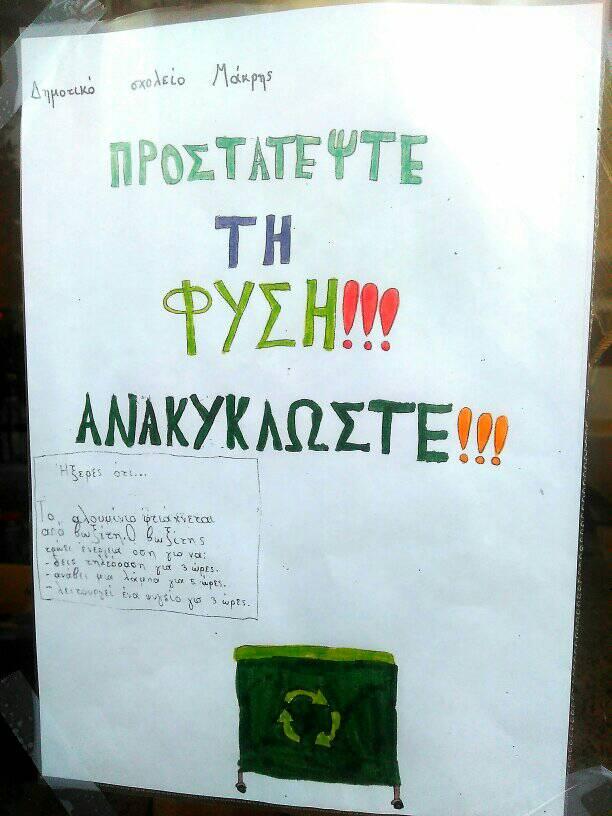 Δημοτικό σχολείο Μάκρης
ΠΡΟΣΤΑΤΕΨΤΕ
ΤΗ
ΦΥΣΗ!!!
ΑΝΑΚΥΚΛΩΣΤΕ!!!
Ήξερες ότι...
Το αλουμίνιο φτιάχνεται
από βωξίτη. Ο βωξίτης
τρώει ενέργια οση για να:
- δεις τηλεόραση για 3 ώρες.
- ανάβει μια λάμπα για 5 ώρες.
- λειτουργεί ένα ψυγείο για 3 ώρες.